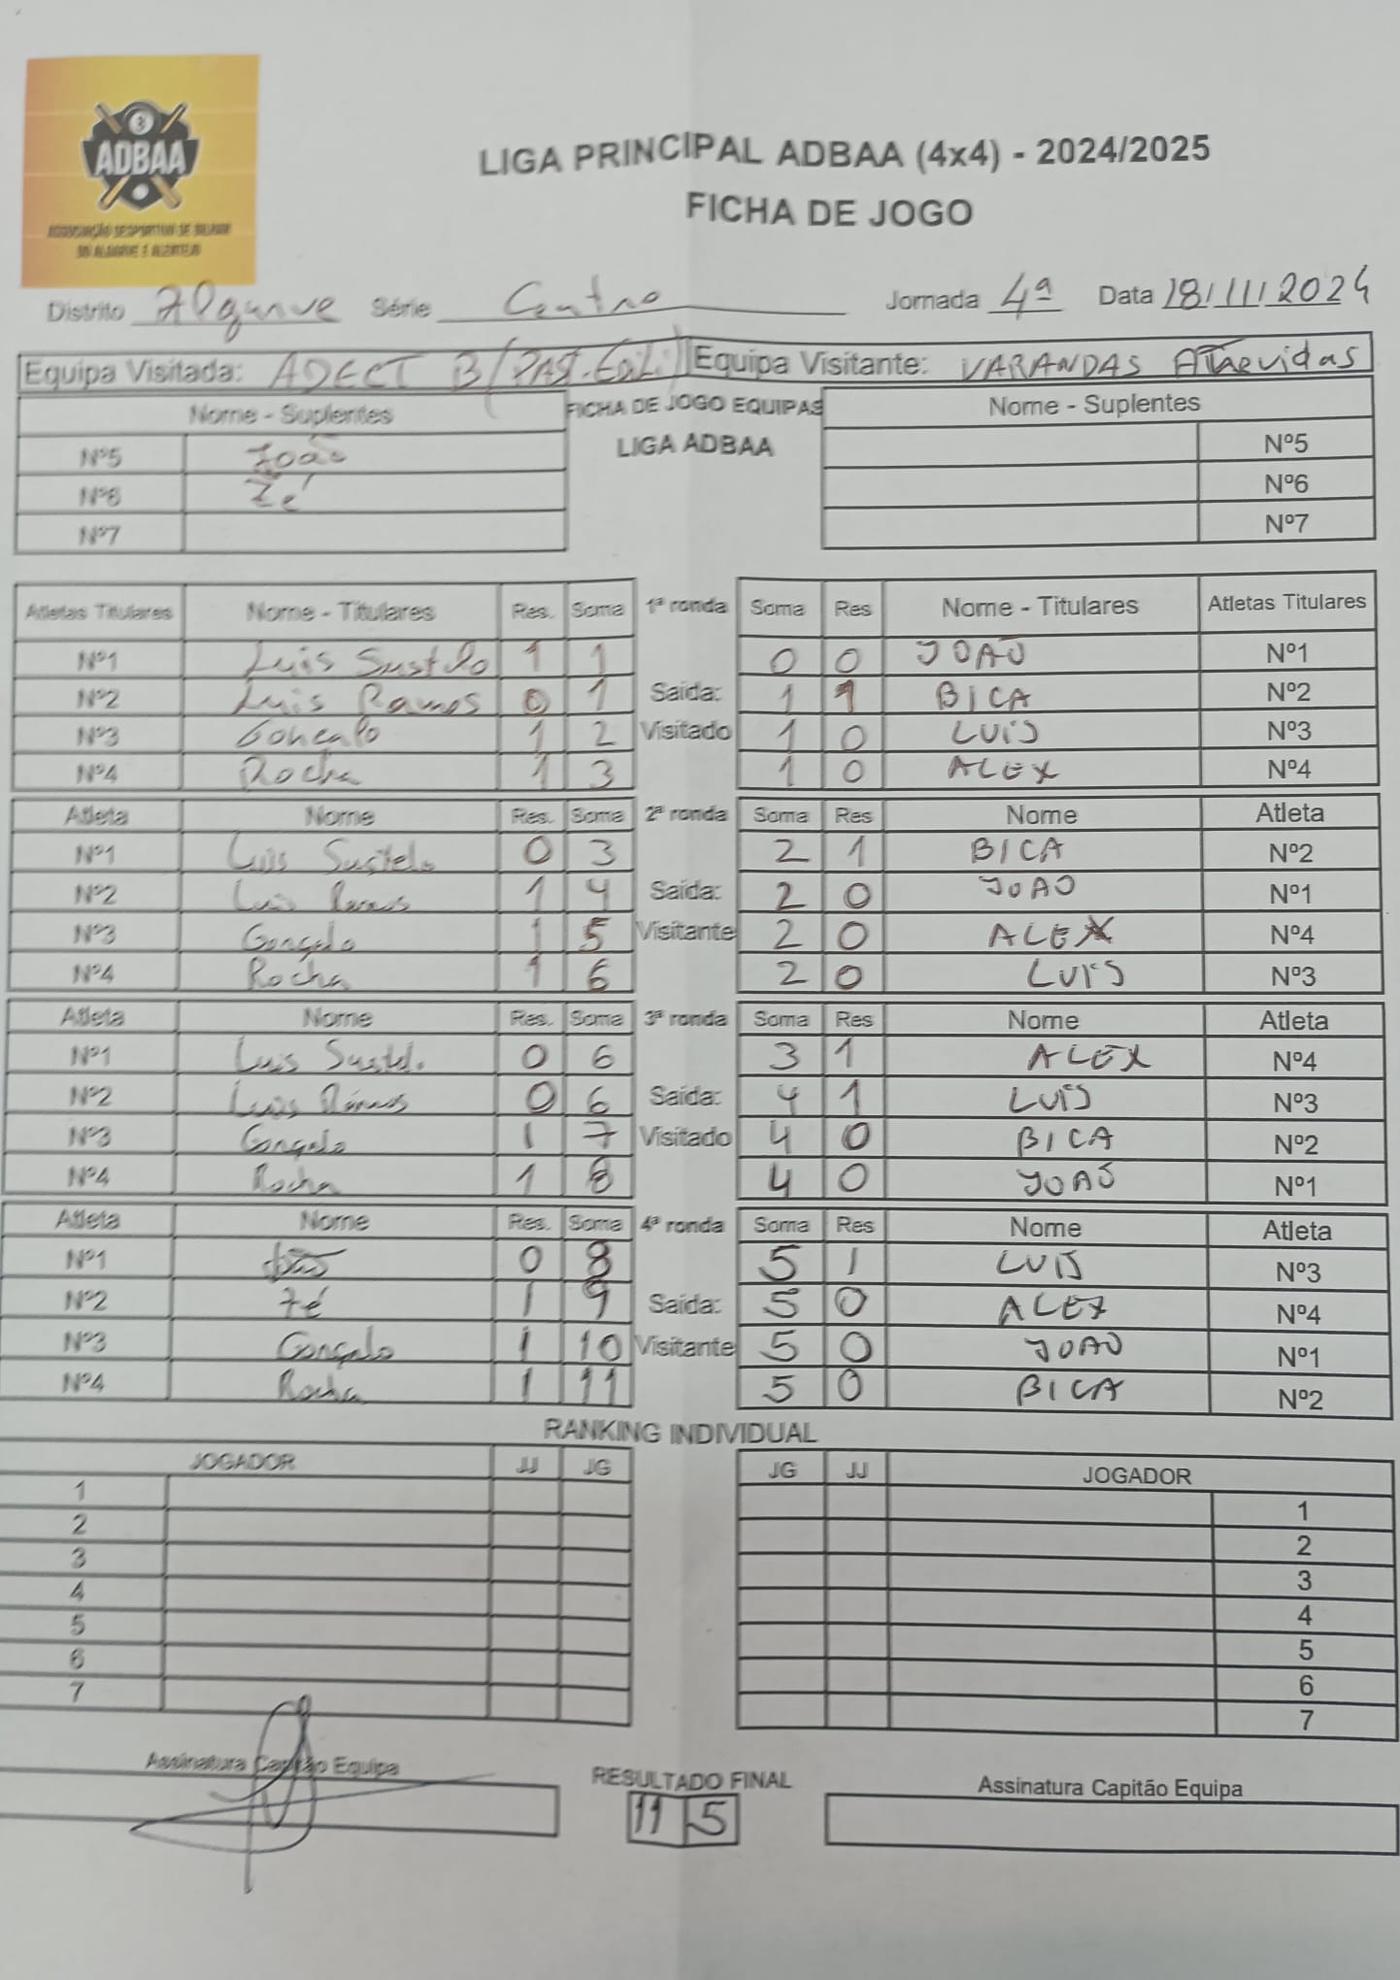 ADBAA
ASSOCIAÇÃO DESPORTIVA DE BILHAR
DO ALGARVE E ALENTEJO
LIGA PRINCIPAL ADBAA (4x4) - 2024/2025
FICHA DE JOGO
Distrito Algarve Série Centro Jornada 4ª Data 18/11/2024
Equipa Visitada: ADECT B / Equipa Visitante: VARANDAS Atrevidas
Nome - Suplentes FICHA DE JOGO EQUIPAS Nome - Suplentes
LIGA ADBAA
Nº5 João Nº5
Nº6 Zé Nº6
Nº7 Nº7
Atletas Titulares Nome - Titulares Res. Soma 1ª ronda Soma Res Nome - Titulares Atletas Titulares
Nº1 Luis Sustelo 1 1 0 0 JOAO Nº1
Nº2 Luis Ramos 0 1 Saída: 1 1 BICA Nº2
Nº3 Gonçalo 1 2 Visitado 1 0 LUIS Nº3
Nº4 Rocha 1 3 1 0 ALEX Nº4
Atleta Nome Res. Soma 2ª ronda Soma Res Nome Atleta
Nº1 Luis Sustelo 0 3 2 1 BICA Nº2
Nº2 Luis Ramos 1 4 Saída: 2 0 JOAO Nº1
Nº3 Gonçalo 1 5 Visitante 2 0 ALEX Nº4
Nº4 Rocha 1 6 2 0 LUIS Nº3
Atleta Nome Res. Soma 3ª ronda Soma Res Nome Atleta
Nº1 Luis Sustel. 0 6 3 1 ALEX Nº4
Nº2 Luis Ramos 0 6 Saída: 4 1 LUIS Nº3
Nº3 Gonçalo 1 7 Visitado 4 0 BICA Nº2
Nº4 Rocha 1 8 4 0 JOAO Nº1
Atleta Nome Res. Soma 4ª ronda Soma Res Nome Atleta
Nº1 João 0 8 5 1 LUIS Nº3
Nº2 Zé 1 9 Saída: 5 0 ALEX Nº4
Nº3 Gonçalo 1 10 Visitante 5 0 JOAO Nº1
Nº4 Rocha 1 11 5 0 BICA Nº2
RANKING INDIVIDUAL
JOGADOR JJ JG JG JJ JOGADOR
1 1
2 2
3 3
4 4
5 5
6 6
7 7
Assinatura Capitão Equipa RESULTADO FINAL Assinatura Capitão Equipa
11 5